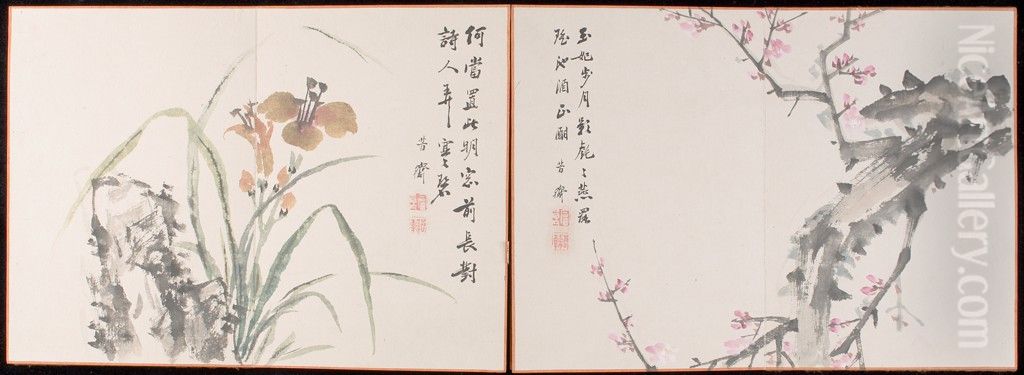 何當置此明窓前長對
詩人弄寒碧
昔齋
玉妃步月影毿毿燕罷
瑤池酒正酣
昔齋
NiceArtGallery.com